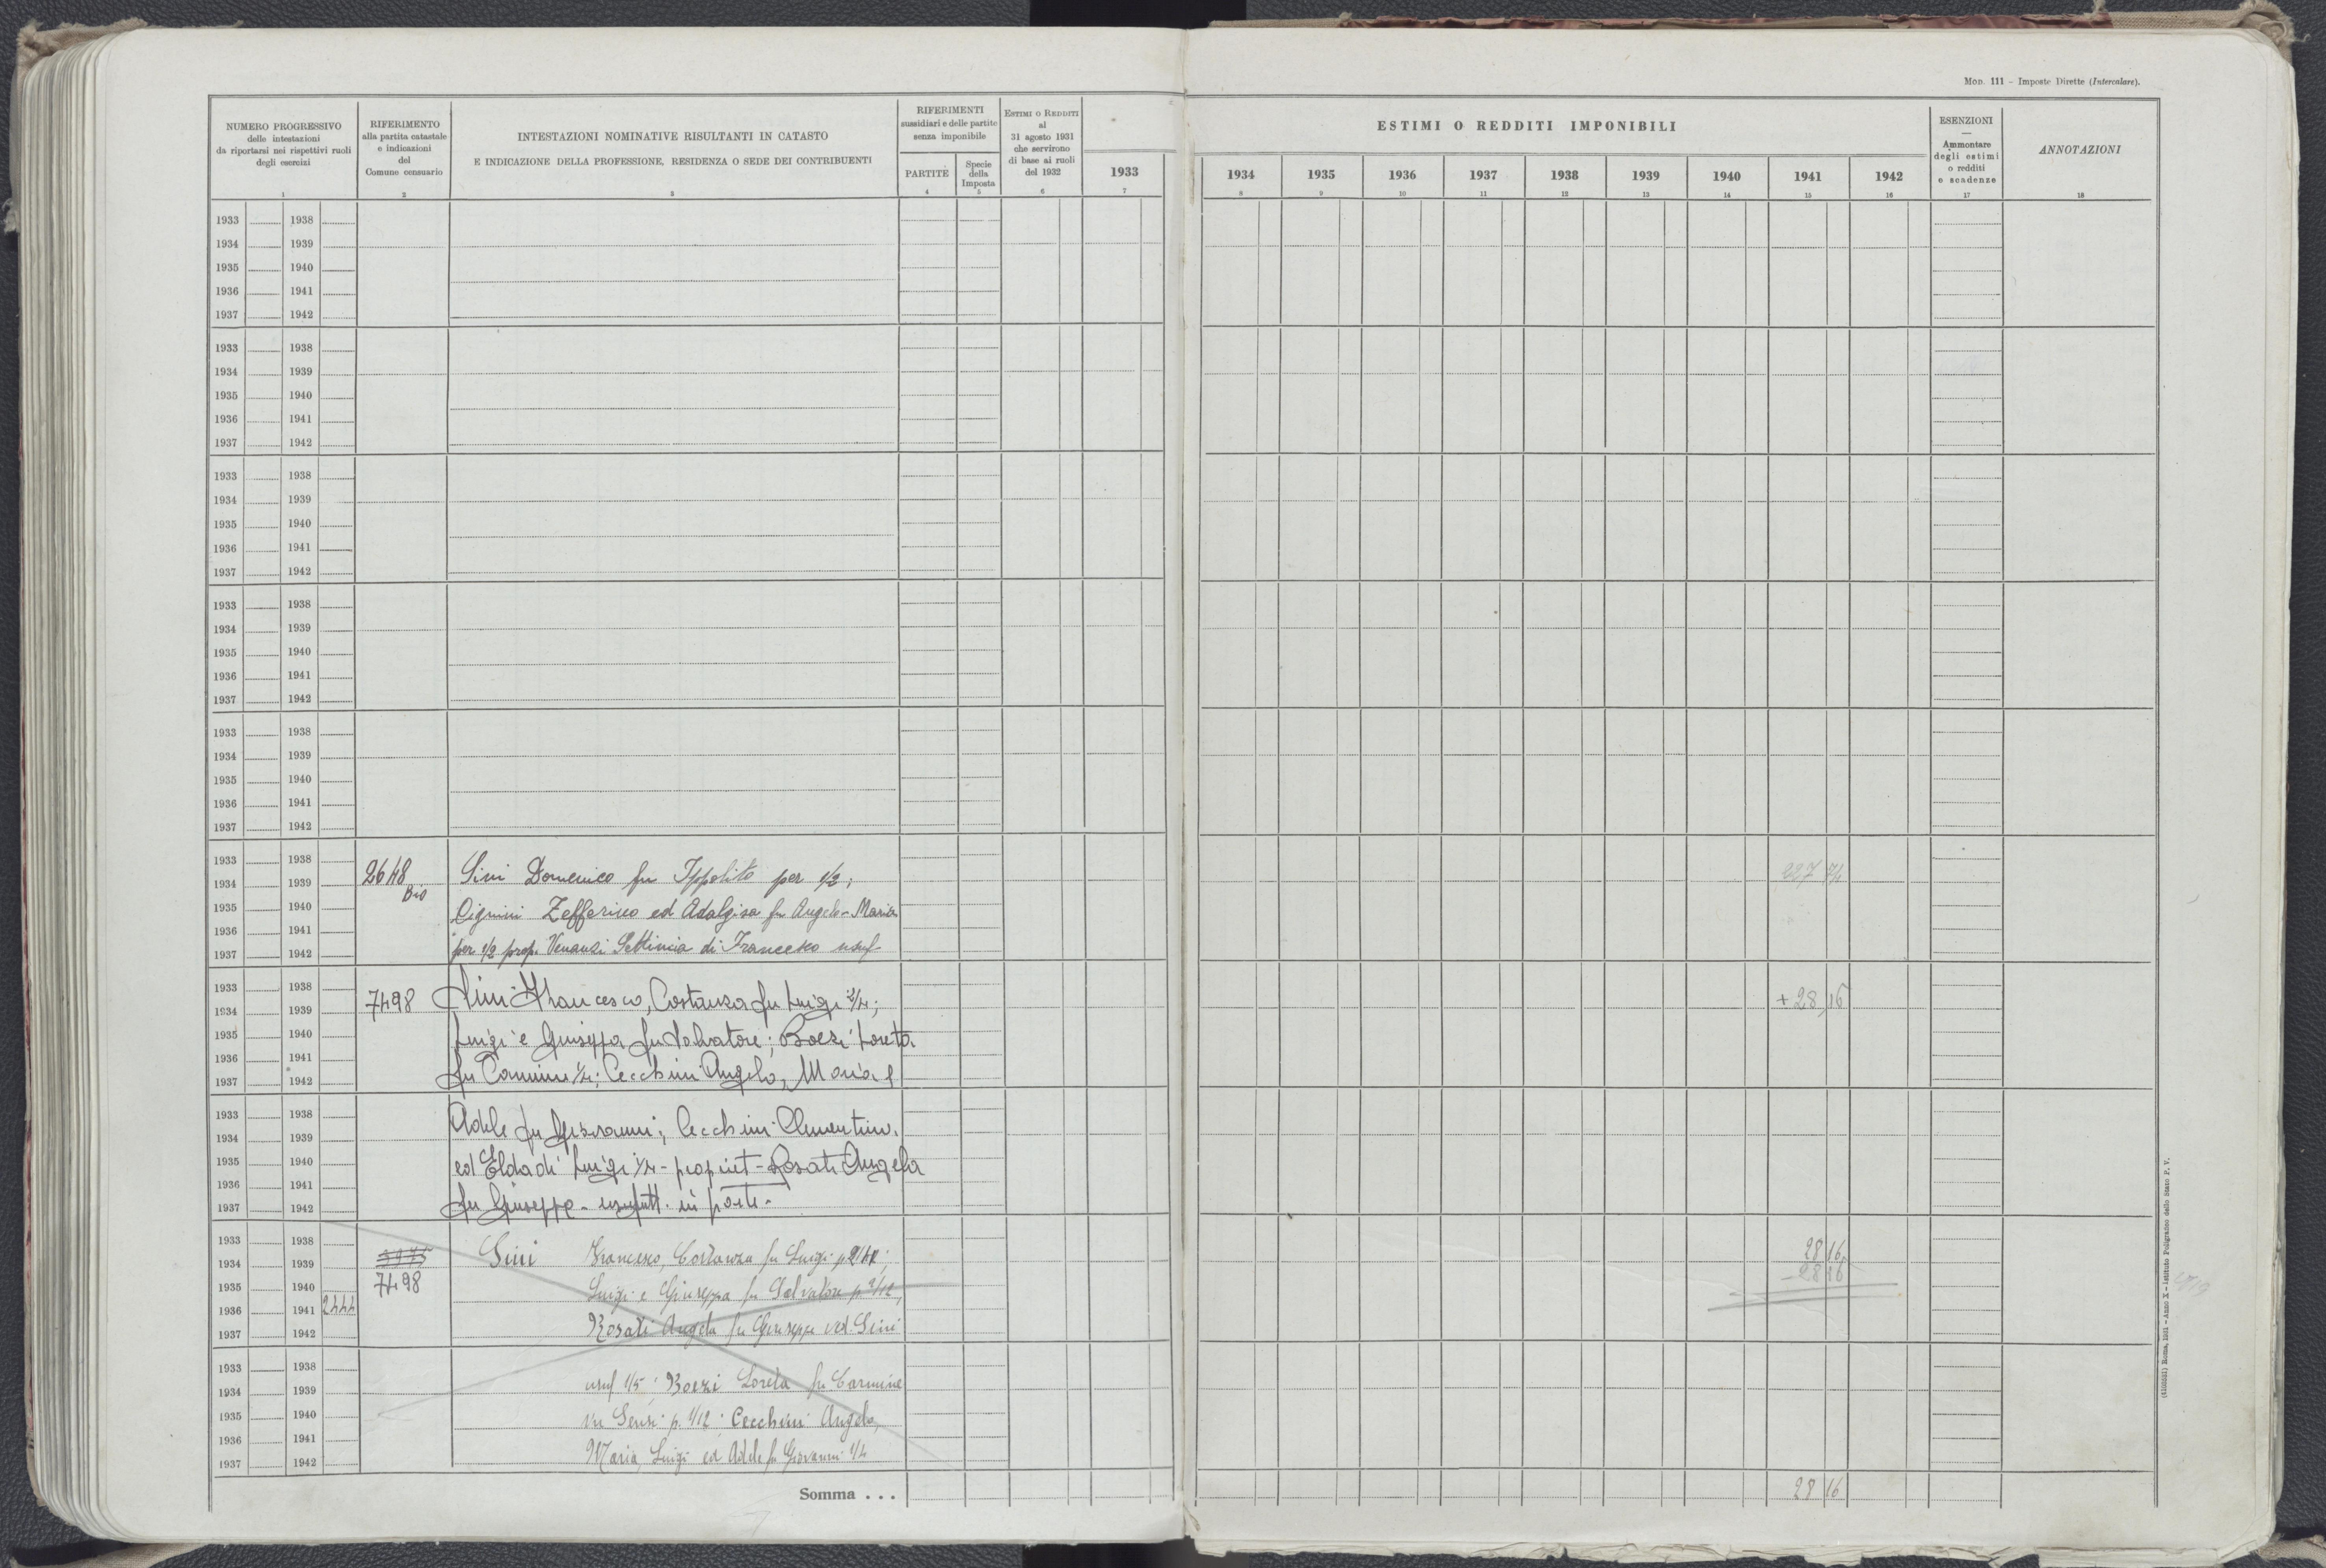 Mod. 111 – Imposte Dirette (Intercalare).
NUMERO PROGRESSIVO
delle intestazioni
da riportarsi nei rispettivi ruoli
degli esercizi
1
RIFERIMENTO
alla partita catastale
e indicazioni
del
Comune censuario
2
INTESTAZIONI NOMINATIVE RISULTANTI IN CATASTO
E INDICAZIONE DELLA PROFESSIONE, RESIDENZA O SEDE DEI CONTRIBUENTI
3
RIFERIMENTI
sussidiari e delle partite
senza imponibile
PARTITE
4
Specie
della
Imposta
5
ESTIMI O REDDITI
al
31 agosto 1931
che servirono
di base ai ruoli
del 1932
6
1933
7
ESTIMI O REDDITI IMPONIBILI
1934 1935 1936 1937 1938 1939 1940 1941 1942
8 9 10 11 12 13 14 15 16
ESENZIONI
—
Ammontare
degli estimi
o redditi
e scadenze
17
ANNOTAZIONI
18
1933 1938
1934 1939
1935 1940
1936 1941
1937 1942
1933 1938
1934 1939
1935 1940
1936 1941
1937 1942
1933 1938
1934 1939
1935 1940
1936 1941
1937 1942
1933 1938
1934 1939
1935 1940
1936 1941
1937 1942
1933 1938
1934 1939
1935 1940
1936 1941
1937 1942
1933 1938
1934 1939 2648 Sini Domenico fu Ippolito per 1/2; 227 74
Bis
1935 1940 Zefferino ed Adalgisa fu Angelo-Maria
1936 1941
1937 1942 per 1/2 prop. Venanzi Settimia di Francesco usuf-
1933 1938
1934 1939 7498 Sini Francesco, Costanza fu Luigi 2/4; +28,16
1935 1940 Luigi e Giuseppa fu Salvatore; Boezi Loreta
1936 1941
1937 1942 fu Carmine 1/4; Cecchini Angelo, Maria e
1933 1938 Adele fu Giovanni; Cecchini
1934 1939
1935 1940 ed Elda di Luigi 1/4 - propriet - Rosati Angela
1936 1941
1937 1942 fu Giuseppe - usufrutt. in parte-
1933 1938
1934 1939 5975 Sini Francesco, Costanza fu Luigi 28 16
1935 1940 7498 Luigi e Giuseppa fu Salvatore p. 2/12, -28 16
1936 1941 2444
1937 1942 Rosati Angela fu Giuseppe ved. Sini
1933 1938
1934 1939 usuf 1/5; Boezi Loreta fu Carmine
1935 1940 p. 1/12; Cecchini Angelo,
1936 1941
1937 1942 Maria, Luigi ed Adele fu Giovanni 1/4
Somma . . . 28 16
Roma, 1931 – Anno X – Istituto Poligrafico dello Stato P. V.